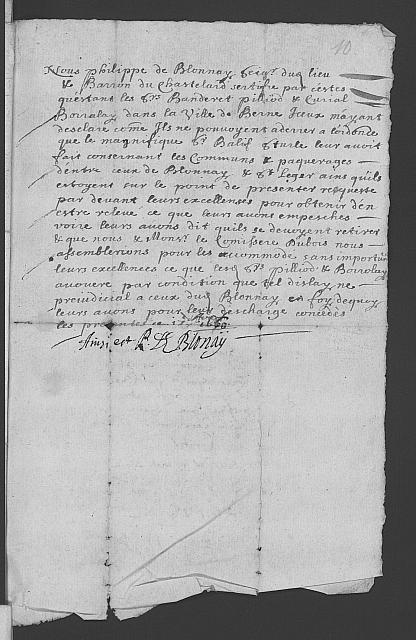 10
Nous Philippe de Blonnay Seigr dud lieu
& Barron du Chastelard sertifie par cestes
questant les Srs Banderet Pilliod & Curial
Borralay dans la Ville de Berne Iceux mayant
desclaré come Ils ne pouvoyent aderrer a
que le magnifique Sr Balif sturle leur avoit
fait consernant les Communs & paquerages
dentre ceux de Blonnay & St Leger ains quils
estoyent sur le point de presenter resqueste
par devant leurs excellences pour obtenir den
estre releve ce que leurs avons empesches
voire leurs avons dit quils se devoyent retirer
& que nous & Monsr le Comissere Dubois nous
assemblerions pour les accommodé sans importuner
leurs excellences ce que lesd Srs Pilliod & Borrolay
avouere par condition que tel dislay ne
prejudicial a ceux dud Blonnay en foy dequoy
leurs avons pour leur descharge concedes
les presentes ce
Ainsi est P. De Blonay